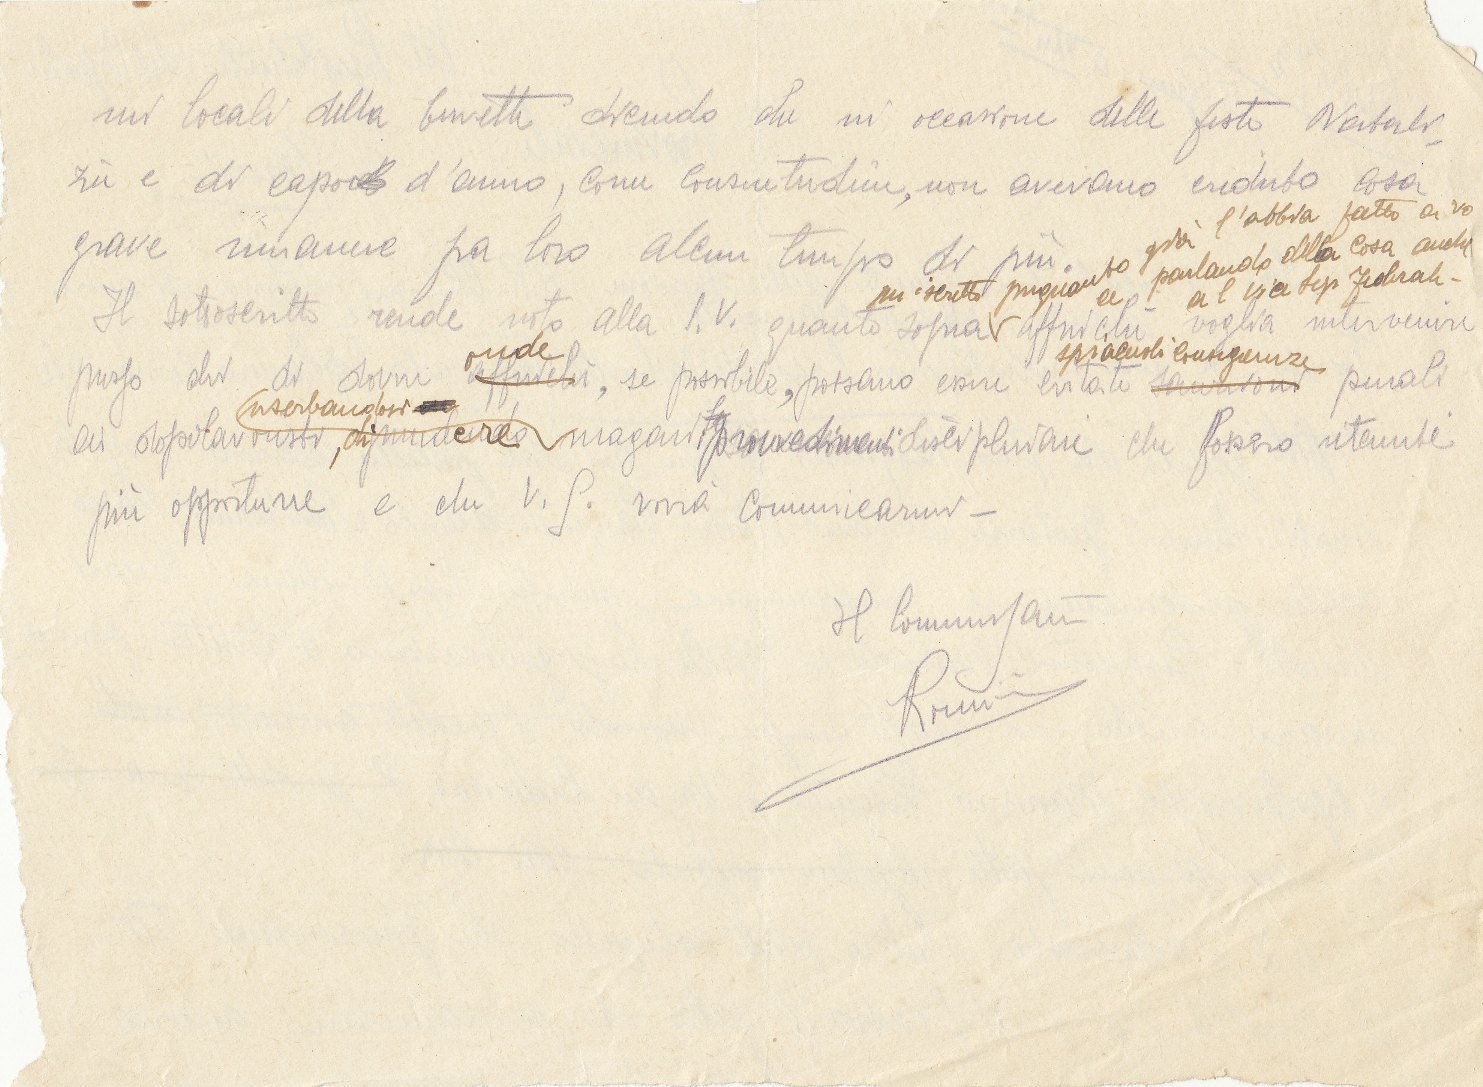 nei locali della bersetta dicendo che in occasione delle feste Natali-
zie e di capod d'anno, come consuetudine, non avevano creduto cosa
grave rimanere per loro alcun tempo di più.
in iscritto purquanto già l'abbia fatto a vo
ce parlando della cosa anche
Il sottoscritto rende noto alla S.V. quanto sopra affinchè voglia intervenire
onde spiacevoli conseguenze
presso chi di dovere affinchè, se possibile, possano essere evitate sanzioni penali
riserbandosi
ai dopolavoristi, di prendere magari provvedimenti disciplinari che fossero ritenuti
più opportuni e che V.S. vorrà comunicarmi -
Il Commissario